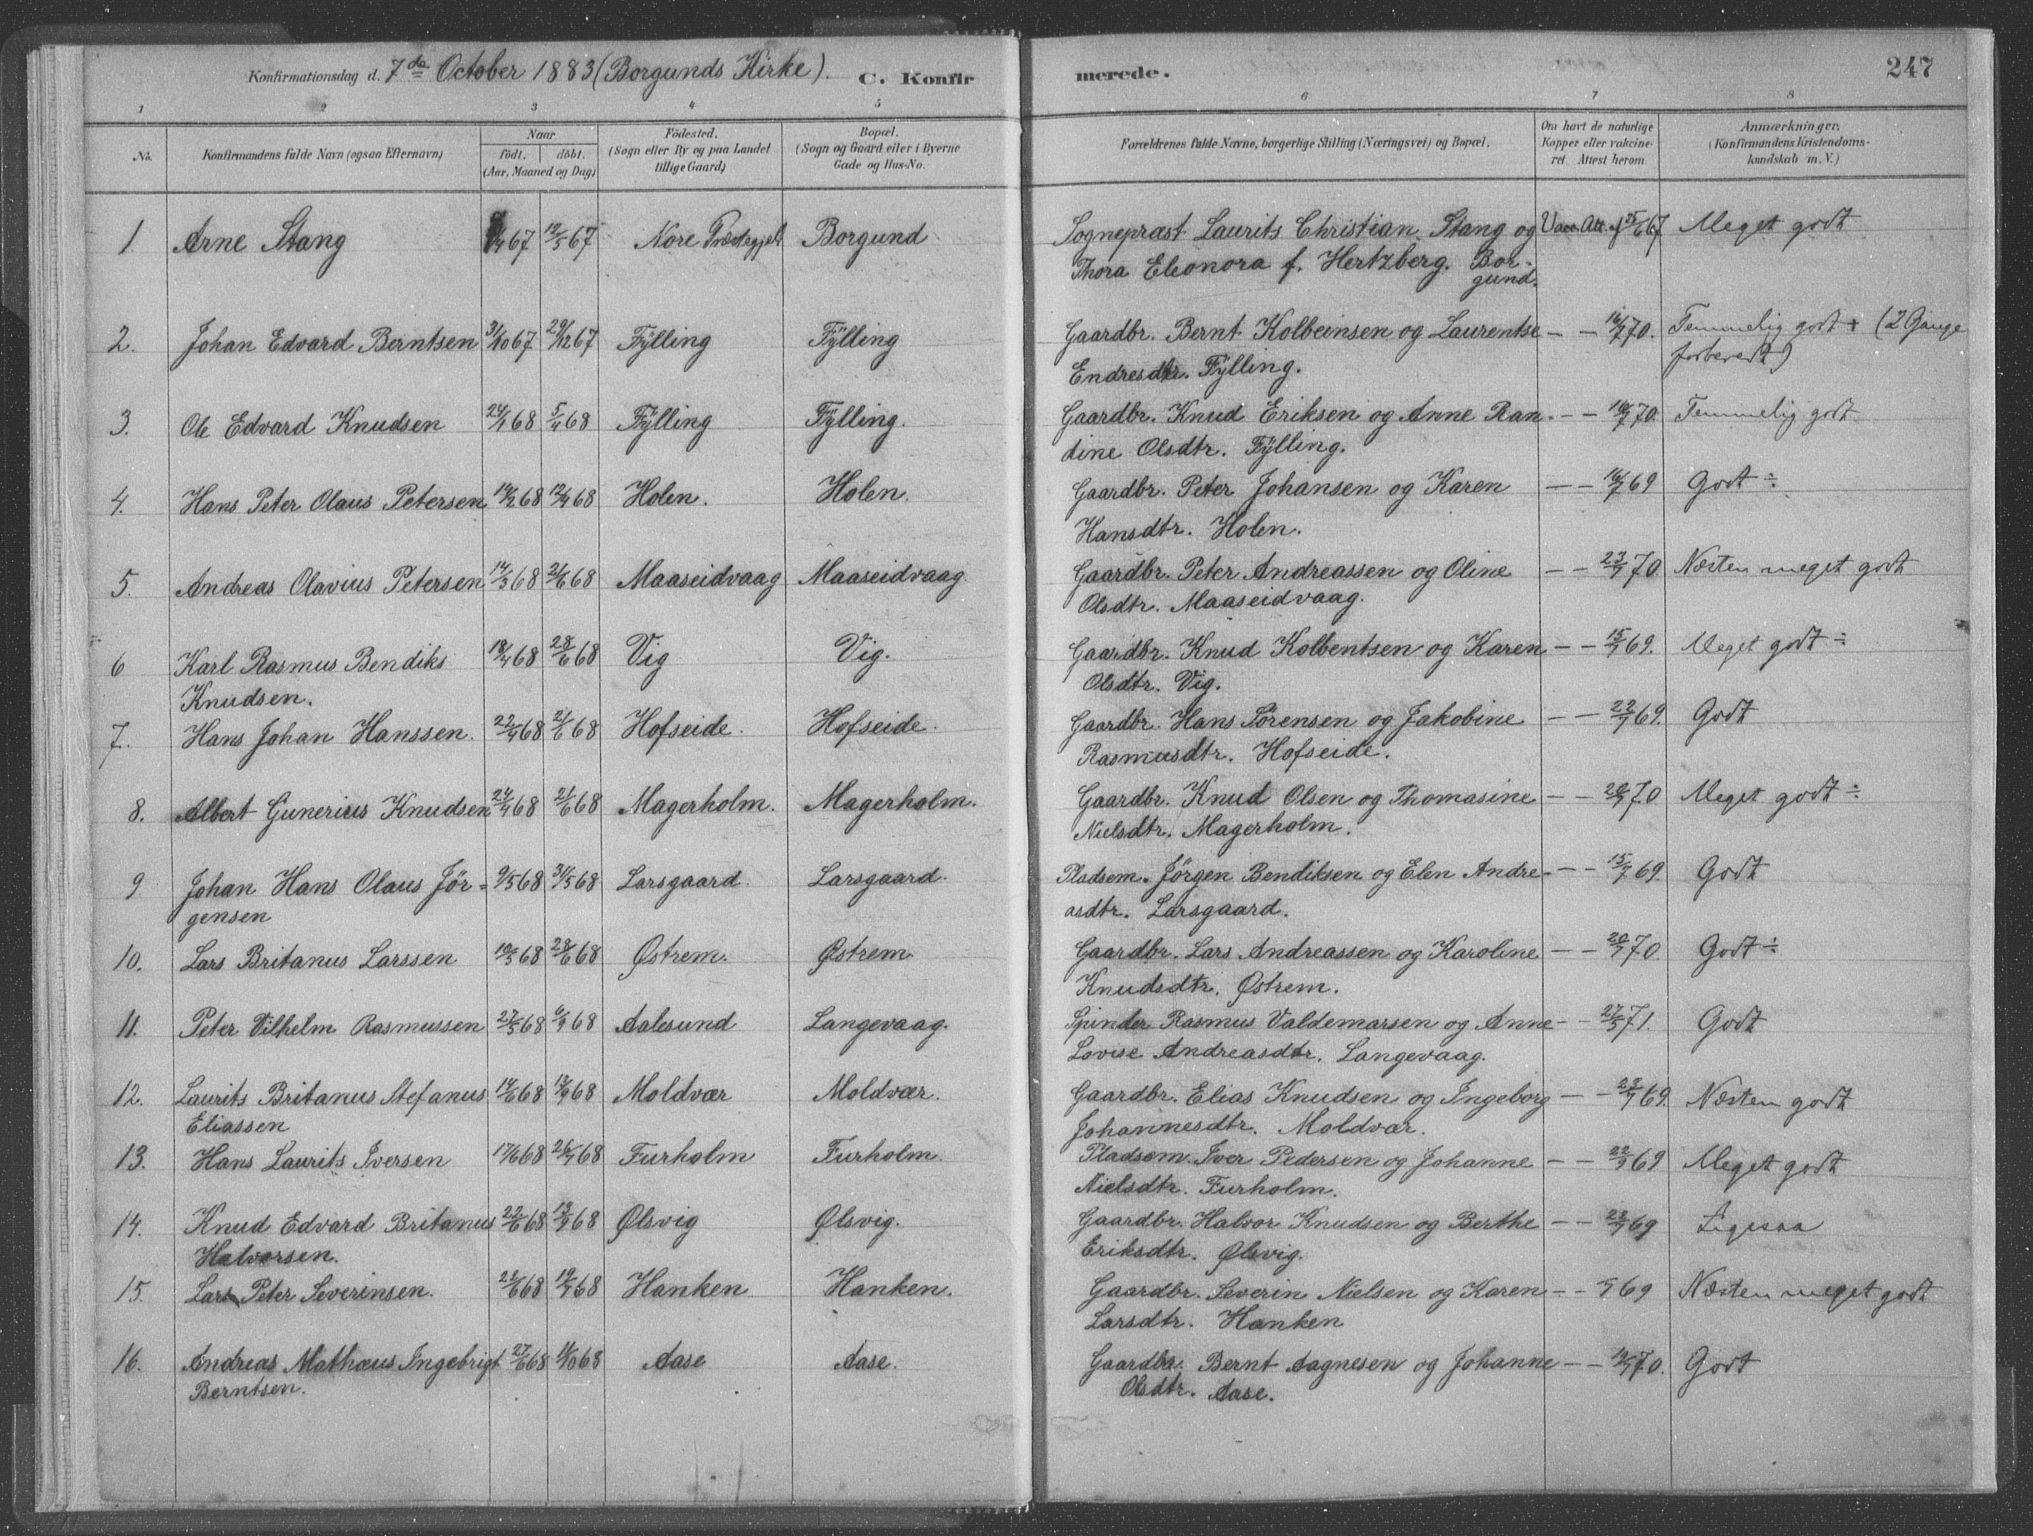 Konfirmationsdag d. 7de October 1883 (Borgunds Kirke). C. Konfirmerede. 247
1 2 3 4 5 6 7 8
No. Konfirmandens fulde Navn (ogsaa Efternavn) Naar født. døbt. (Aar, Maaned og Dag) Fødested. (Sogn eller By og paa Landet tillige Gaard) Bopæl. (Sogn og Gaard eller i Byerne Gade og Hus-No. Forældrenes fulde Navne, borgerlige Stilling (Næringsvei) og Bopæl. Om havt de naturlige Kopper eller vaccineret. Attest herom. Anmærkninger. (Konfirmandens Kristendomskundskab m. V.)
1 Arne Stang /4 67 12/5 67 Nore Præstegjeld Borgund Sogneprest Laurits Christian Stang og Vacc. Att. af 25/6 67 Meget godt
Thora Eleonora f. Hertzberg. Borgund.
2. Johan Edvard Berntsen 31/10 67 29/12 67 Fÿlling Fÿlling Gaardbr. Bernt Kolbeinsen og Laurentse — — 16/7 70. Temmelig godt + (2 Gange
Endresdtr. Fÿlling. forberedt)
3. Ole Edvard Knudsen 24/1 68 5/4 68 Fÿlling Fÿlling. Gaardbr. Knud Eriksen og Anne Ran- — — 16/7 70. Temmelig godt
dine Olsdtr. Fÿlling.
4. Hans Peter Olaus Petersen 14/2 68 12/4 68 Holen. Holen. Gaardbr. Peter Johansen og Karen — — 16/7 69 Godt ÷
Hansdtr. Holen.
5. Andreas Olavius Petersen 14/3 68 21/6 68 Maaseidvaag Maaseidvaag Gaardbr. Peter Andreassen og Oline — — 23/7 70 Næsten meget godt
Olsdtr. Maaseidvaag.
6 Karl Rasmus Bendiks 18/4 68 28/6 68 Vig Vig. Gaardbr. Knud Kolbentsen og Karen — — 15/7 69. Meget godt ÷
Knudsen. Olsdtr. Vig.
7. Hans Johan Hanssen. 22/4 68 21/6 68 Hofseide. Hofseide. Gaardbr. Hans Sørensen og Jakobine — — 22/7 69. Godt
Rasmusdtr. Hofseide.
8. Albert Gunerius Knudsen 24/4 68 21/6 68 Magerholm. Magerholm. Gaardbr. Knud Olsen og Thomasine — — 20/7 70 Meget godt ÷
Nielsdtr. Magerholm.
9 Johan Hans Olaus Jör= 9/5 68 31/5 68 Larsgaard. Larsgaard. Pladsem. Jørgen Bendiksen og Elen Andre- — — 15/7 69. Godt
gensen asdtr. Larsgaard.
10. Lars Britanus Larssen 10/5 68 28/6 68 Østrem. Østrem Gaardbr. Lars Andreassen og Karoline — — 20/7 70 Godt ÷
Knudsdtr. Østrem.
11. Peter Vilhelm Rasmussen 27/5 68 6/9 68 Aalesund Langevaag. Spinder Rasmus Valdemarsen og Anne — — 27/5 71. Godt
Lovise Andreasdtr. Langevaag.
12. Laurits Britanus Stefanus 14/6 68 13/9 68 Moldvær Moldvær. Gaardbr. Elias Knudsen og Ingeborg — — 23/7 69. Næsten godt
Eliassen Johannesdtr. Moldvær.
13. Hans Laurits Iversen 17/6 68 26/7 68 Furholm Furholm. Pladsem. Iver Pedersen og Johanne — — 22/9 69 Meget godt
Nielsdtr. Furholm.
14. Knud Edvard Britanus 22/6 68 13/9 68 Ølsvig Ølsvig. Gaardbr. Halvor Knudsen og Berthe — — 23/7 69 Ligesaa
Halvorsen. Eriksdtr. Ølsvig.
15. Lars Peter Severinsen. 22/6 68 19/7 68 Hanken Hanken. Gaardbr. Severin Nielsen og Karen — — 69 Næsten meget godt
Larsdtr. Hanken
16. Andreas Mathæus Ingebrigt 27/6 68 4/10 68 Aase Aase. Gaardbr. Bernt Aagnesen og Johanne — — 70. Godt
Berntsen. Olsdtr. Aase.